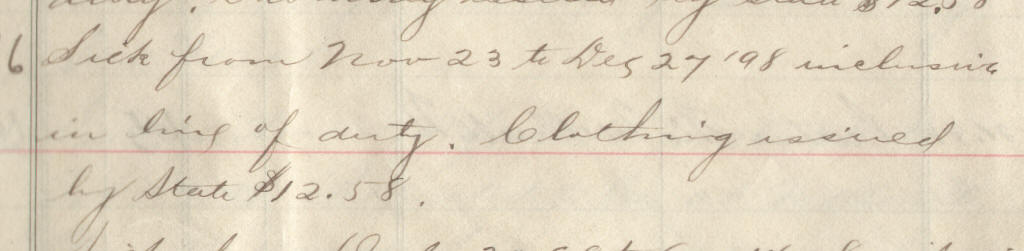 duty. Clothing issued by State $12.58
6 Sick from Nov 23 to Dec 27 '98 inclusive
in line of duty. Clothing issued
by State $12.58.